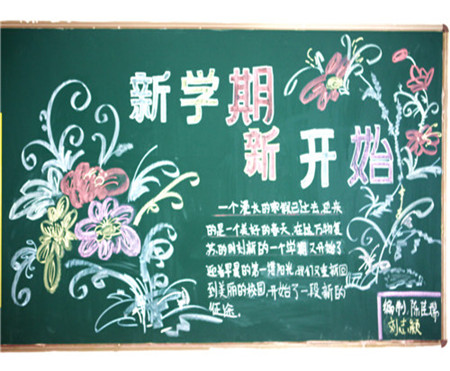 新学期
新开始
一个漫长的寒假已过去,迎来
的是一个美好的春天,在这万物复
苏的时刻新的一个学期又开始了
迎着早晨的第一缕阳光,我们又重新回
到美丽的校园,开始了一段新的
征途.
杨
刘志颖